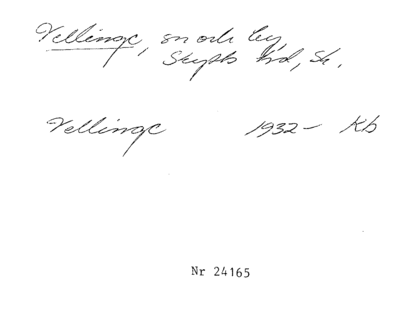 Vellinge, sn och by,
Skytts hd, Sk.
Vellinge 1932– Kb
Nr 24165